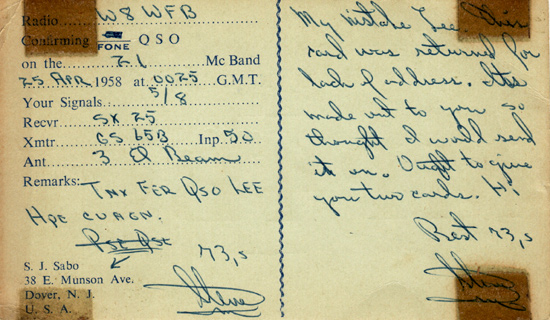 Radio W8WFB
Confirming FONE QSO
on the 21 Mc Band
25 APR 1958 at 0025 G.M.T.
Your Signals 5/8
Recvr SX 25
Xmtr GS 65B Inp. 50
Ant 3 El Beam
Remarks: TNX FER QSO LEE
HPE CUAGN.
PSE QSL
73,s
Steve
S. J. Sabo
38 E. Munson Ave.
Dover, N. J.
U. S. A.
My mistake Lee. This
card was returned for
lack of address. Its
made out to you so
thought I would send
it on. Ought to give
you two cards. Hi
Best 73,s
Steve